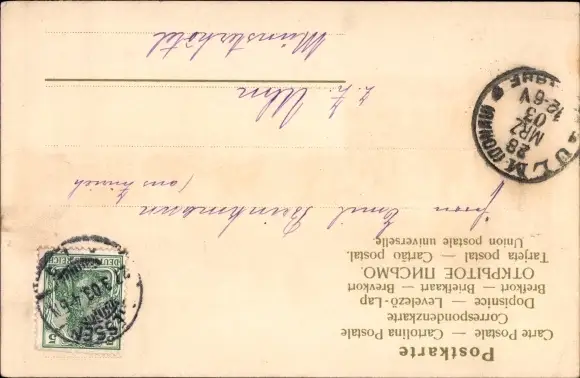 Postkarte
Carte Postale — Cartolina Postale
Correspondenzkarte
Dopisnice — Levelező-Lap
Brefkort — Briefkaart — Brevkort
ОТКРЫТОЕ ПИСЬМО.
Tarjeta postal — Cartão postal.
Union postale universelle.
Herrn Emil Brinkmann
(aus Zürich)
z. Z. Ulm
Münsterhotel
5
REICH
ESSEN
3.03. 4-5 N
ULM (DONAU)
28
MRZ
03
12-6V